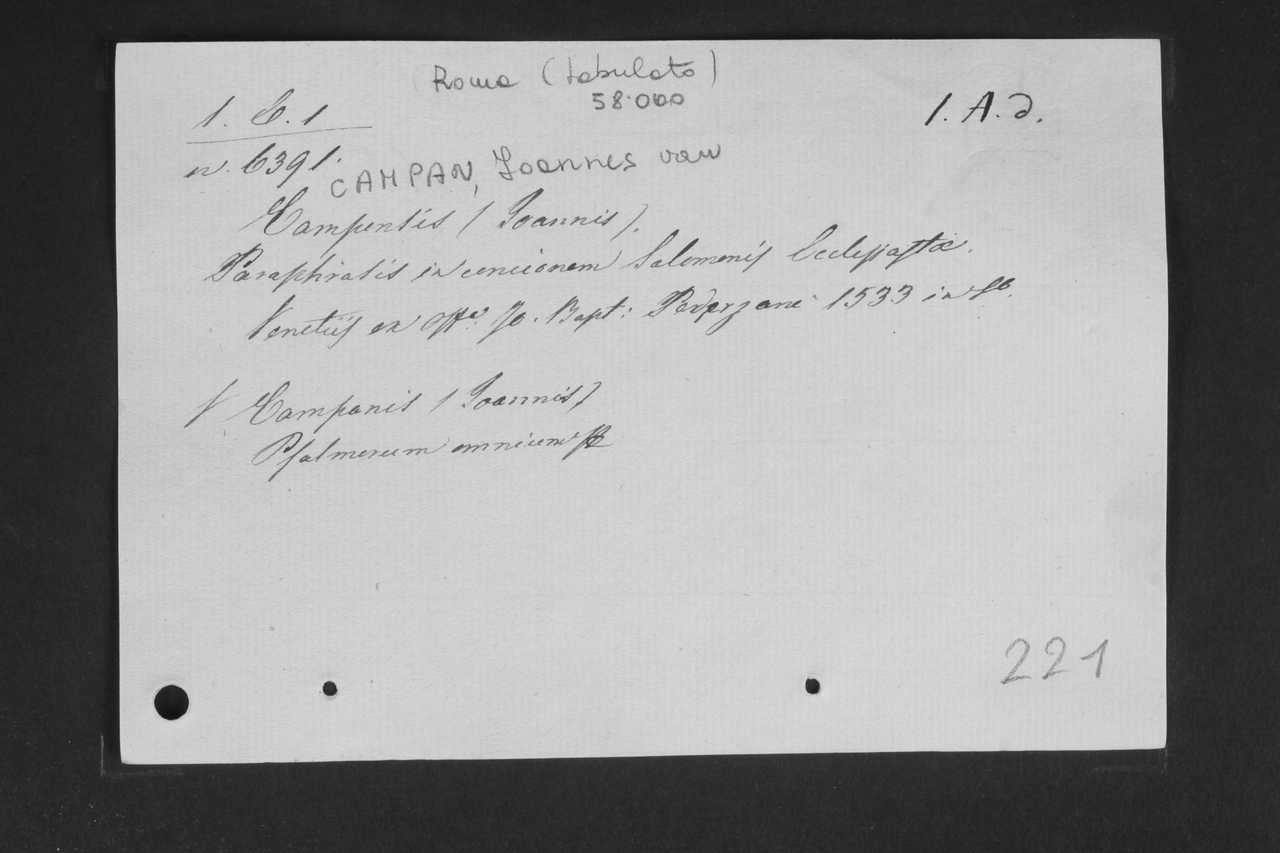 Roma (tabulato)
58.000
1. C. 1
1. A. d.
n. 6391.
CAMPAN, Joannes van
Campensis (Joannis).
Paraphrasis in concionem Salomonis Ecclesiastæ.
Venetiis ex Jo. Bapt: Pederzani 1533 in
V Campanis (Joannis)
Psalmorum omnium
221